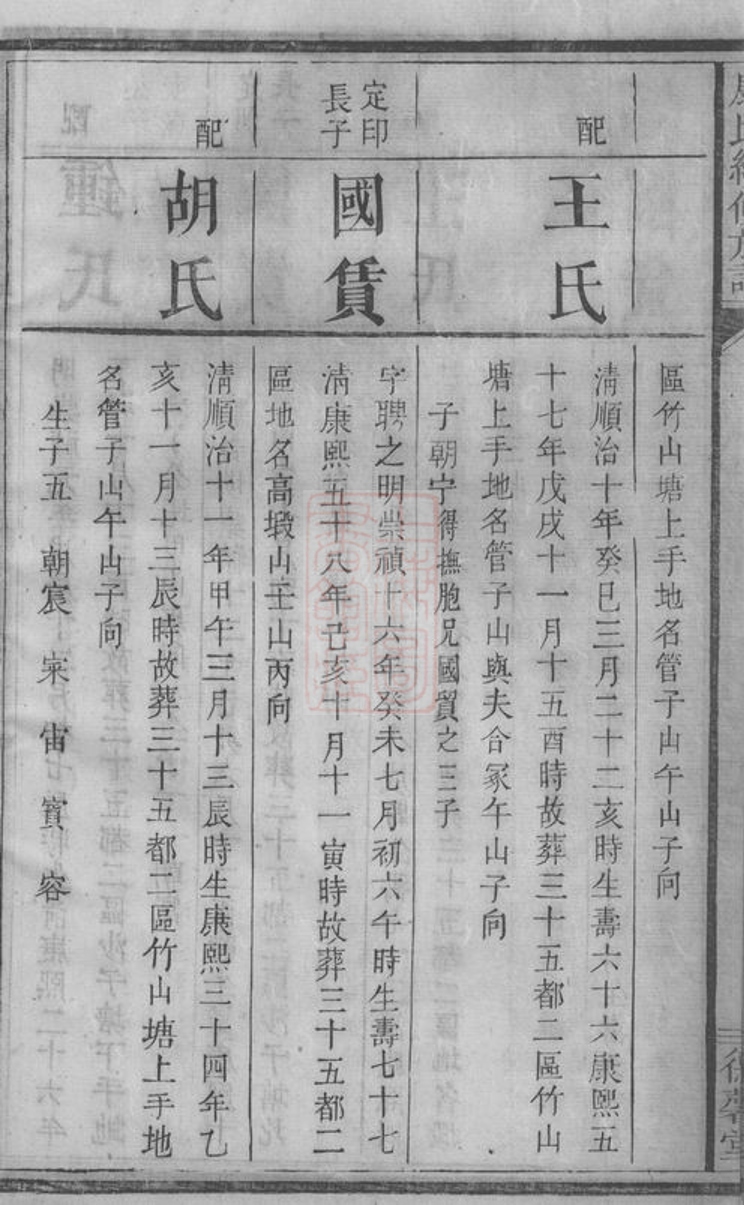 區竹山塘上手地名管子山午山子向
配
王氏
清順治十年癸巳三月二十二亥時生壽六十六康熙五
十七年戊戌十一月十五酉時故葬三十五都二區竹山
塘上手地名管子山與夫合冢午山子向
子朝宁得撫胞兄國賢之三子
定印
長子
國賃
字聘之明崇禎十六年癸未七月初六午時生壽七十七
清康熙五十八年己亥十月十一寅時故葬三十五都二
區地名高塅山壬山丙向
配
胡氏
清順治十一年甲午三月十三辰時生康熙三十四年乙
亥十一月十三辰時故葬三十五都二區竹山塘上手地
名管子山午山子向
生子五 朝宸 宋 宙 賓 容